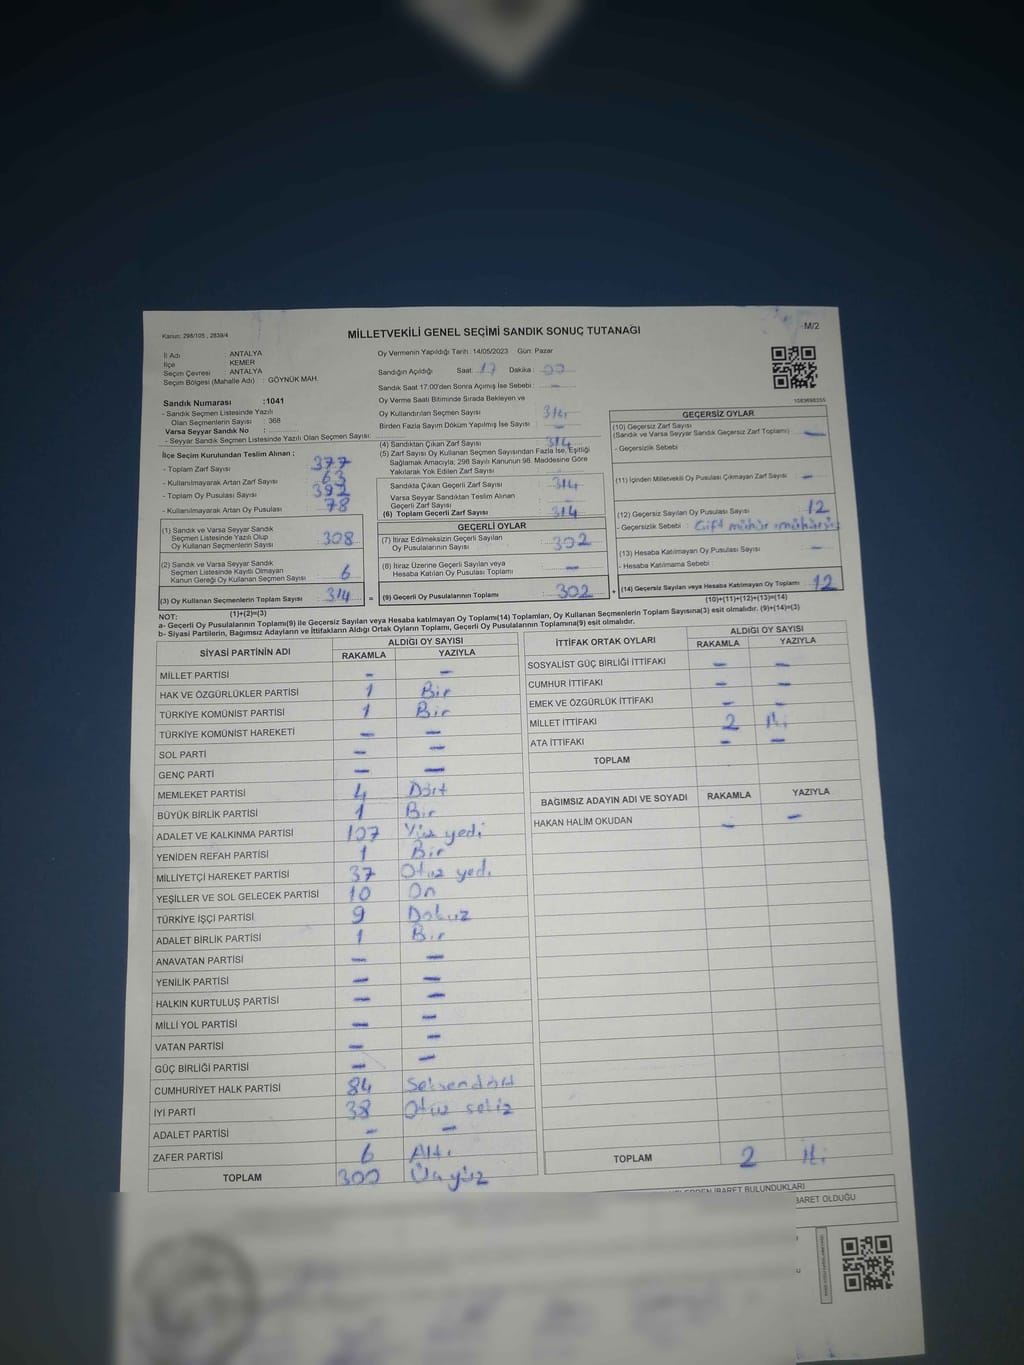 Kanun: 298/105 , 2839/4
MİLLETVEKİLİ GENEL SEÇİMİ SANDIK SONUÇ TUTANAĞI
M/2
İl Adı : ANTALYA
İlçe : KEMER
Seçim Çevresi : ANTALYA
Seçim Bölgesi (Mahalle Adı) : GÖYNÜK MAH.
Sandık Numarası :1041
- Sandık Seçmen Listesinde Yazılı
Olan Seçmenlerin Sayısı : 368
Varsa Seyyar Sandık No :
- Seyyar Sandık Seçmen Listesinde Yazılı Olan Seçmen Sayısı:
İlçe Seçim Kurulundan Teslim Alınan ;
- Toplam Zarf Sayısı : 377
- Kullanılmayarak Artan Zarf Sayısı : 63
- Toplam Oy Pusulası Sayısı : 392
- Kullanılmayarak Artan Oy Pusulası : 78
(1) Sandık ve Varsa Seyyar Sandık
Seçmen Listesinde Yazılı Olup
Oy Kullanan Seçmenlerin Sayısı : 308
(2) Sandık ve Varsa Seyyar Sandık
Seçmen Listesinde Kayıtlı Olmayan
Kanun Gereği Oy Kullanan Seçmen Sayısı : 6
(3) Oy Kullanan Seçmenlerin Toplam Sayısı : 314 =
(1)+(2)=(3)
Oy Vermenin Yapıldığı Tarih : 14/05/2023 Gün: Pazar
Sandığın Açıldığı Saat: 17 Dakika : 00
Sandık Saat 17:00'den Sonra Açılmış İse Sebebi : -
Oy Verme Saati Bitiminde Sırada Bekleyen ve
Oy Kullandırılan Seçmen Sayısı : 314
Birden Fazla Sayım Döküm Yapılmış İse Sayısı : -
(4) Sandıktan Çıkan Zarf Sayısı : 314
(5) Zarf Sayısı Oy Kullanan Seçmen Sayısından Fazla İse, Eşitliği
Sağlamak Amacıyla; 298 Sayılı Kanunun 98. Maddesine Göre
Yakılarak Yok Edilen Zarf Sayısı :
Sandıkta Çıkan Geçerli Zarf Sayısı : 314
Varsa Seyyar Sandıktan Teslim Alınan
Geçerli Zarf Sayısı : -
(6) Toplam Geçerli Zarf Sayısı : 314
GEÇERLİ OYLAR
(7) İtiraz Edilmeksizin Geçerli Sayılan
Oy Pusulalarının Sayısı : 302
(8) İtiraz Üzerine Geçerli Sayılan veya
Hesaba Katılan Oy Pusulası Toplamı : -
(9) Geçerli Oy Pusulalarının Toplamı : 302 +
1083698355
GEÇERSİZ OYLAR
(10) Geçersiz Zarf Sayısı
(Sandık ve Varsa Seyyar Sandık Geçersiz Zarf Toplamı) : -
- Geçersizlik Sebebi :
(11) İçinden Milletvekili Oy Pusulası Çıkmayan Zarf Sayısı : -
(12) Geçersiz Sayılan Oy Pusulası Sayısı : 12
- Geçersizlik Sebebi : Çift mühür mühürsüz
(13) Hesaba Katılmayan Oy Pusulası Sayısı : -
- Hesaba Katılmama Sebebi :
(14) Geçersiz Sayılan veya Hesaba Katılmayan Oy Toplamı : 12
(10)+(11)+(12)+(13)=(14)
NOT:
a- Geçerli Oy Pusulalarının Toplamı(9) ile Geçersiz Sayılan veya Hesaba katılmayan Oy Toplamı(14) Toplamları, Oy Kullanan Seçmenlerin Toplam Sayısına(3) eşit olmalıdır. (9)+(14)=(3)
b- Siyasi Partilerin, Bağımsız Adayların ve İttifakların Aldığı Ortak Oyların Toplamı, Geçerli Oy Pusulalarının Toplamına(9) eşit olmalıdır.
SİYASİ PARTİNİN ADI ALDIĞI OY SAYISI
RAKAMLA YAZIYLA
MİLLET PARTİSİ - -
HAK VE ÖZGÜRLÜKLER PARTİSİ 1 Bir
TÜRKİYE KOMÜNİST PARTİSİ 1 Bir
TÜRKİYE KOMÜNİST HAREKETİ - -
SOL PARTİ - -
GENÇ PARTİ - -
MEMLEKET PARTİSİ 4 Dört
BÜYÜK BİRLİK PARTİSİ 1 Bir
ADALET VE KALKINMA PARTİSİ 107 Yüz yedi
YENİDEN REFAH PARTİSİ 1 Bir
MİLLİYETÇİ HAREKET PARTİSİ 37 Otuz yedi
YEŞİLLER VE SOL GELECEK PARTİSİ 10 On
TÜRKİYE İŞÇİ PARTİSİ 9 Dokuz
ADALET BİRLİK PARTİSİ 1 Bir
ANAVATAN PARTİSİ - -
YENİLİK PARTİSİ - -
HALKIN KURTULUŞ PARTİSİ - -
MİLLİ YOL PARTİSİ - -
VATAN PARTİSİ - -
GÜÇ BİRLİĞİ PARTİSİ - -
CUMHURİYET HALK PARTİSİ 84 Seksendört
İYİ PARTİ 38 Otuz sekiz
ADALET PARTİSİ - -
ZAFER PARTİSİ 6 Altı
TOPLAM 300 Üçyüz
İTTİFAK ORTAK OYLARI ALDIĞI OY SAYISI
RAKAMLA YAZIYLA
SOSYALİST GÜÇ BİRLİĞİ İTTİFAKI - -
CUMHUR İTTİFAKI - -
EMEK VE ÖZGÜRLÜK İTTİFAKI - -
MİLLET İTTİFAKI 2 İki
ATA İTTİFAKI - -
TOPLAM
BAĞIMSIZ ADAYIN ADI VE SOYADI RAKAMLA YAZIYLA
HAKAN HALİM OKUDAN - -
TOPLAM 2 İki
İBARET BULUNDUKLARI
BARET OLDUĞU